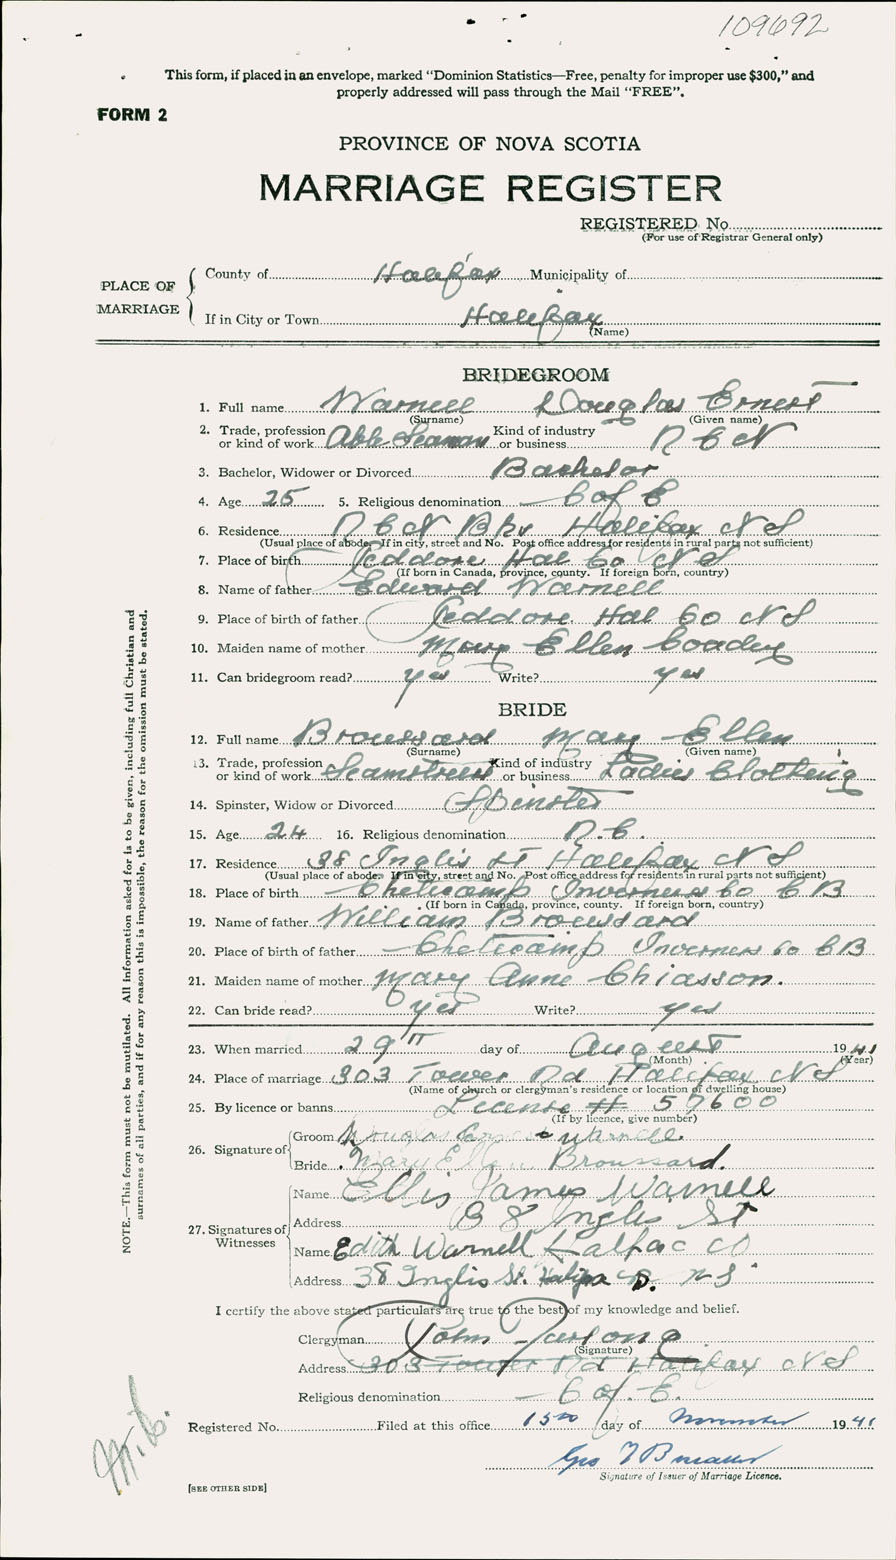 109692
This form, if placed in an envelope, marked "Dominion Statistics—Free, penalty for improper use $300," and
properly addressed will pass through the Mail "FREE".
FORM 2
PROVINCE OF NOVA SCOTIA
MARRIAGE REGISTER
REGISTERED No.
(For use of Registrar General only)
PLACE OF MARRIAGE
County of Halifax Municipality of
If in City or Town Halifax
(Name)
BRIDEGROOM
1. Full name Warnell Douglas Ernest
(Surname) (Given name)
2. Trade, profession or kind of work Able Seaman Kind of industry or business R C N
3. Bachelor, Widower or Divorced Bachelor
4. Age 25 5. Religious denomination C of E
6. Residence R C N Bks Halifax N S
(Usual place of abode. If in city, street and No. Post office address for residents in rural parts not sufficient)
7. Place of birth Jeddore Hal Co N S
(If born in Canada, province, county. If foreign born, country)
8. Name of father Edward Warnell
9. Place of birth of father Jeddore Hal Co N S
10. Maiden name of mother Mary Ellen Coady
11. Can bridegroom read? yes Write? yes
BRIDE
12. Full name Broussard Mary Ellen
(Surname) (Given name)
13. Trade, profession or kind of work Seamstress Kind of industry or business Ladies Clothing
14. Spinster, Widow or Divorced Spinster
15. Age 24 16. Religious denomination R.C.
17. Residence 38 Inglis St Halifax N S
(Usual place of abode. If in city, street and No. Post office address for residents in rural parts not sufficient)
18. Place of birth Cheticamp Inverness Co C B
(If born in Canada, province, county. If foreign born, country)
19. Name of father William Broussard
20. Place of birth of father Cheticamp Inverness Co C B
21. Maiden name of mother Mary Anne Chiasson.
22. Can bride read? yes Write? yes
23. When married 29th day of August 1941
(Month) (Year)
24. Place of marriage 303 Tower Rd Halifax N S
(Name of church or clergyman's residence or location of dwelling house)
25. By licence or banns License # 57600
(If by licence, give number)
26. Signature of
Groom Douglas Ernest Warnell.
Bride Mary Ellen Broussard.
27. Signatures of Witnesses
Name Ellis James Warnell
Address 38 Inglis St
Name Edith Warnell Halifac Co
Address 38 Inglis St. N S
I certify the above stated particulars are true to the best of my knowledge and belief.
Clergyman John Furlong
(Signature)
Address 303 Tower Rd Halifax N S
Religious denomination C of E.
Registered No. Filed at this office 15th day of November 1941
Geo
Signature of Issuer of Marriage Licence.
[SEE OTHER SIDE]
NOTE.—This form must not be mutilated. All information asked for is to be given, including full Christian and
surnames of all parties, and if for any reason this is impossible, the reason for the omission must be stated.